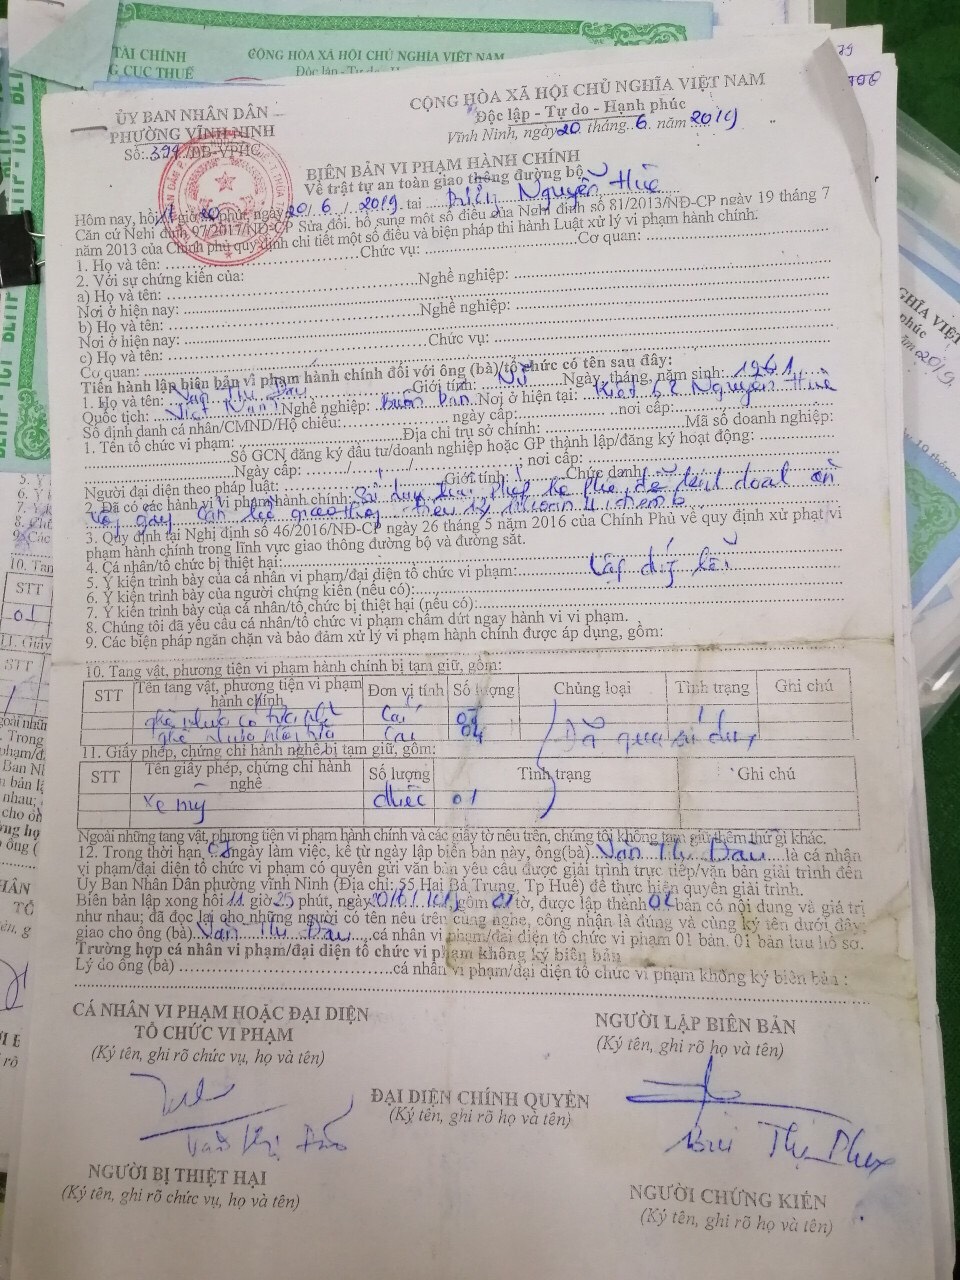 TÀI CHÍNH
CỘNG HÒA XÃ HỘI CHỦ NGHĨA VIỆT NAM
G CỤC THUẾ
Độc lập - Tự do - Hạnh
ỦY BAN NHÂN DÂN
PHƯỜNG VĨNH NINH
Số: 394/BB-VPHC
CỘNG HÒA XÃ HỘI CHỦ NGHĨA VIỆT NAM
Độc lập - Tự do - Hạnh phúc
Vĩnh Ninh, ngày 20 tháng 6 năm 2019
BIÊN BẢN VI PHẠM HÀNH CHÍNH
Về trật tự an toàn giao thông đường bộ
Hôm nay, hồi giờ 20 phút, ngày 20/6/2019 tại Nguyễn Huệ
Căn cứ Nghị định 97/2017/NĐ-CP Sửa đổi, bổ sung một số điều của Nghị định số 81/2013/NĐ-CP ngày 19 tháng 7
năm 2013 của Chính phủ quy định chi tiết một số điều và biện pháp thi hành Luật xử lý vi phạm hành chính.
1. Họ và tên: Chức vụ: Cơ quan:
2. Với sự chứng kiến của:
a) Họ và tên: Nghề nghiệp:
Nơi ở hiện nay:
b) Họ và tên: Nghề nghiệp:
Nơi ở hiện nay:
c) Họ và tên: Chức vụ:
Cơ quan:
Tiến hành lập biên bản vi phạm hành chính đối với ông (bà)/tổ chức có tên sau đây:
1. Họ và tên: Văn Thị Đấu Giới tính: Nữ Ngày, tháng, năm sinh: 1261
Quốc tịch: Việt Nam Nghề nghiệp: buôn bán Nơi ở hiện tại: Nguyễn Huệ
Số định danh cá nhân/CMND/Hộ chiếu: ngày cấp: nơi cấp:
1. Tên tổ chức vi phạm: Địa chỉ trụ sở chính: Mã số doanh nghiệp:
Số GCN đăng ký đầu tư/doanh nghiệp hoặc GP thành lập/đăng ký hoạt động:
Ngày cấp: / / ; nơi cấp:
Người đại diện theo pháp luật: Giới tính: Chức danh:
2. Đã có các hành vi vi phạm hành chính: Sử dụng phép hè phố để kinh doanh ăn
uống gây cản trở giao thông
3. Quy định tại Nghị định số 46/2016/NĐ-CP ngày 26 tháng 5 năm 2016 của Chính Phủ về quy định xử phạt vi
phạm hành chính trong lĩnh vực giao thông đường bộ và đường sắt.
4. Cá nhân/tổ chức bị thiệt hại:
5. Ý kiến trình bày của cá nhân vi phạm/đại diện tổ chức vi phạm: Lập đúng lỗi
6. Ý kiến trình bày của người chứng kiến (nếu có):
7. Ý kiến trình bày của cá nhân/tổ chức bị thiệt hại (nếu có):
8. Chúng tôi đã yêu cầu cá nhân/tổ chức vi phạm chấm dứt ngay hành vi vi phạm.
9. Các biện pháp ngăn chặn và bảo đảm xử lý vi phạm hành chính được áp dụng, gồm:
10. Tang vật, phương tiện vi phạm hành chính bị tạm giữ, gồm:
STT Tên tang vật, phương tiện vi phạm hành chính Đơn vị tính Số lượng Chủng loại Tình trạng Ghi chú
ghế nhựa có tựa Cái
ghế nhựa Cái 04 Đã qua sử dụng
11. Giấy phép, chứng chỉ hành nghề bị tạm giữ, gồm:
STT Tên giấy phép, chứng chỉ hành nghề Số lượng Tình trạng Ghi chú
xe mỳ chiếc 01
Ngoài những tang vật, phương tiện vi phạm hành chính và các giấy tờ nêu trên, chúng tôi không tạm giữ thêm thứ gì khác.
12. Trong thời hạn ngày làm việc, kể từ ngày lập biên bản này, ông(bà) Văn Thị Đấu là cá nhân
vi phạm/đại diện tổ chức vi phạm có quyền gửi văn bản yêu cầu được giải trình trực tiếp/văn bản giải trình đến
Ủy Ban Nhân Dân phường vĩnh Ninh (Địa chỉ: 55 Hai Bà Trưng, Tp Huế) để thực hiện quyền giải trình.
Biên bản lập xong hồi 11 giờ 25 phút, ngày gồm 01 tờ, được lập thành 02 bản có nội dung và giá trị
như nhau; đã đọc lại cho những người có tên nêu trên cùng nghe, công nhận là đúng và cùng ký tên dưới đây;
giao cho ông (bà) Văn Thị Đấu cá nhân vi phạm/đại diện tổ chức vi phạm 01 bản, 01 bản lưu hồ sơ.
Trường hợp cá nhân vi phạm/đại diện tổ chức vi phạm không ký biên bản
Lý do ông (bà) cá nhân vi phạm/đại diện tổ chức vi phạm không ký biên bản :
CÁ NHÂN VI PHẠM HOẶC ĐẠI DIỆN
TỔ CHỨC VI PHẠM
(Ký tên, ghi rõ chức vụ, họ và tên)
NGƯỜI LẬP BIÊN BẢN
(Ký tên, ghi rõ họ và tên)
ĐẠI DIỆN CHÍNH QUYỀN
(Ký tên, ghi rõ họ và tên)
Văn Thị Đấu
Bùi Thị
NGƯỜI BỊ THIỆT HẠI
(Ký tên, ghi rõ chức vụ, họ và tên)
NGƯỜI CHỨNG KIẾN
(Ký tên, ghi rõ họ và tên)